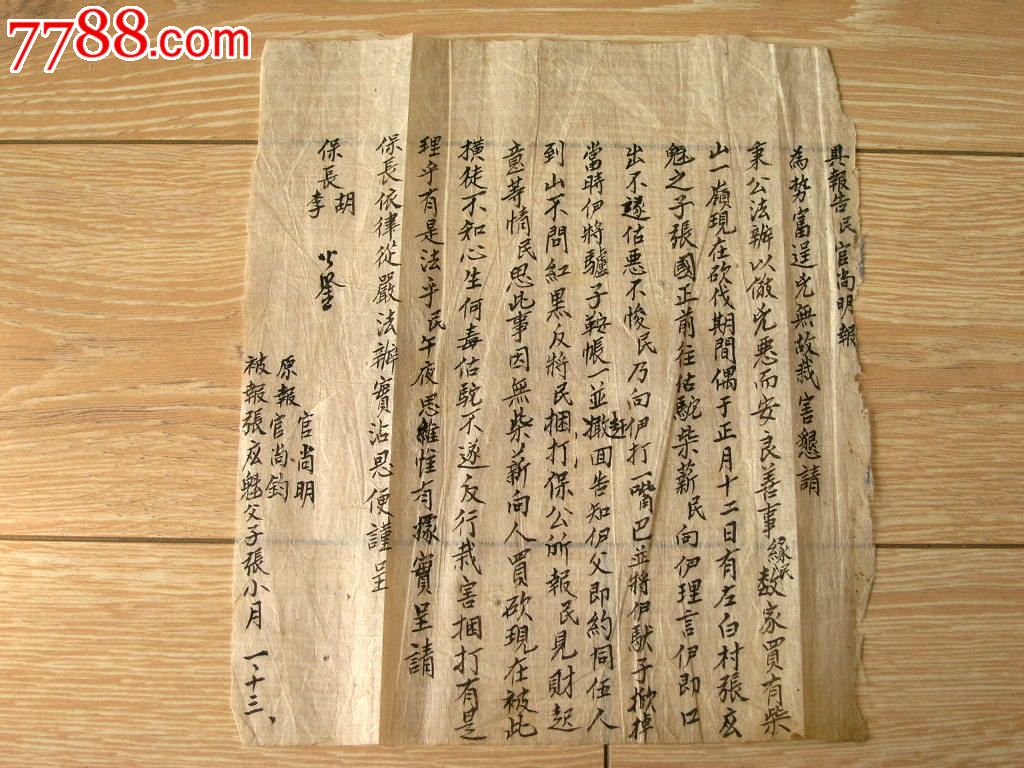 7788.com
具報告民官尚明報
為勢富逞兇無故栽害懇請
秉公法辦以儆兇惡而安良善事緣民數家買有柴
山一嶺現在砍伐期間偶于正月十二日有左白村張玄
魁之子張國正前往估駝柴薪民向伊理言伊即口
出不遜估惡不悛民乃向伊打一嘴巴並將伊馱子掀掉
當時伊將驢子鞍帳一並撒赶回告知伊父即約同伍人
到山不問紅黑反將民捆打保公所報民見財起
意等情民思此事因無柴薪向人買砍現在被此
橫徒不知心生何毒估駝不遂反行栽害捆打有是
理乎有是法乎民午夜思維惟有據實呈請
保長依律從嚴法辦實沾恩便謹呈
保長胡
李
公鑒
原報官尚明
官尚鈞
被報張玄魁父子張小月
一、十三、